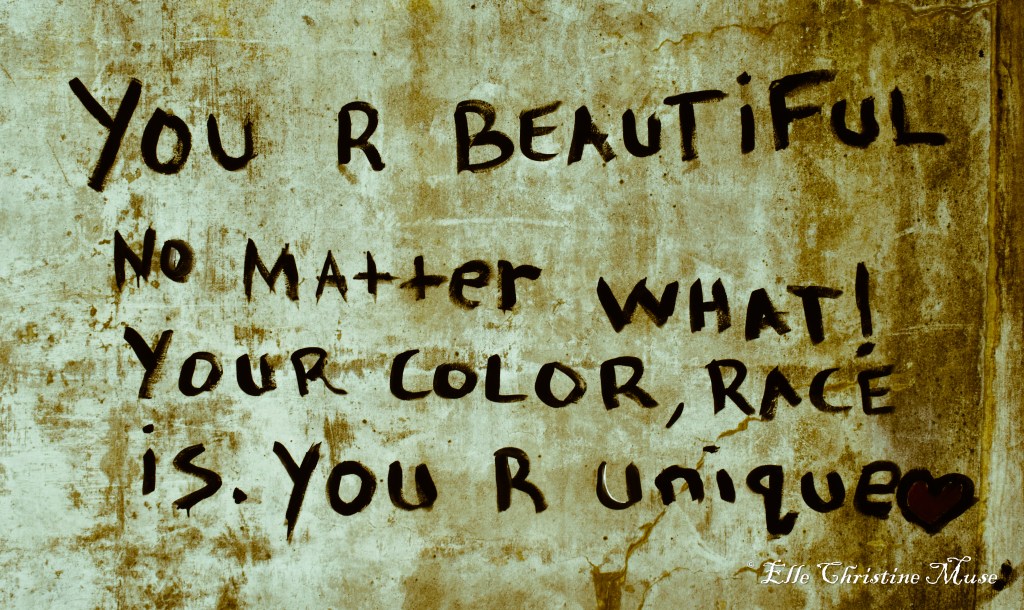 YOU R BEAUTiFUL
NO MAtter WHAT!
YOUR COLOR, RACE
is. YOU R unique
© Elle Christine Muse